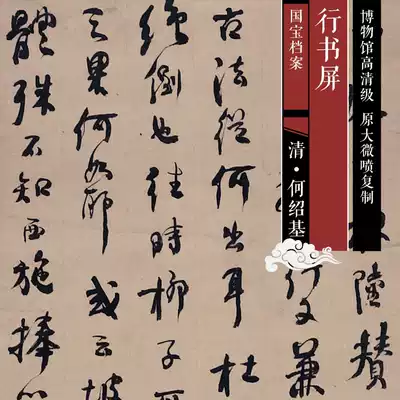 博物馆高清级 原大微喷复制
行书屏
国宝档案
清·何绍基
陸贄
行文兼
古法從何出耳杜
絕倒也往時柳子
之果何如耶或云坡
體殊不知西施捧